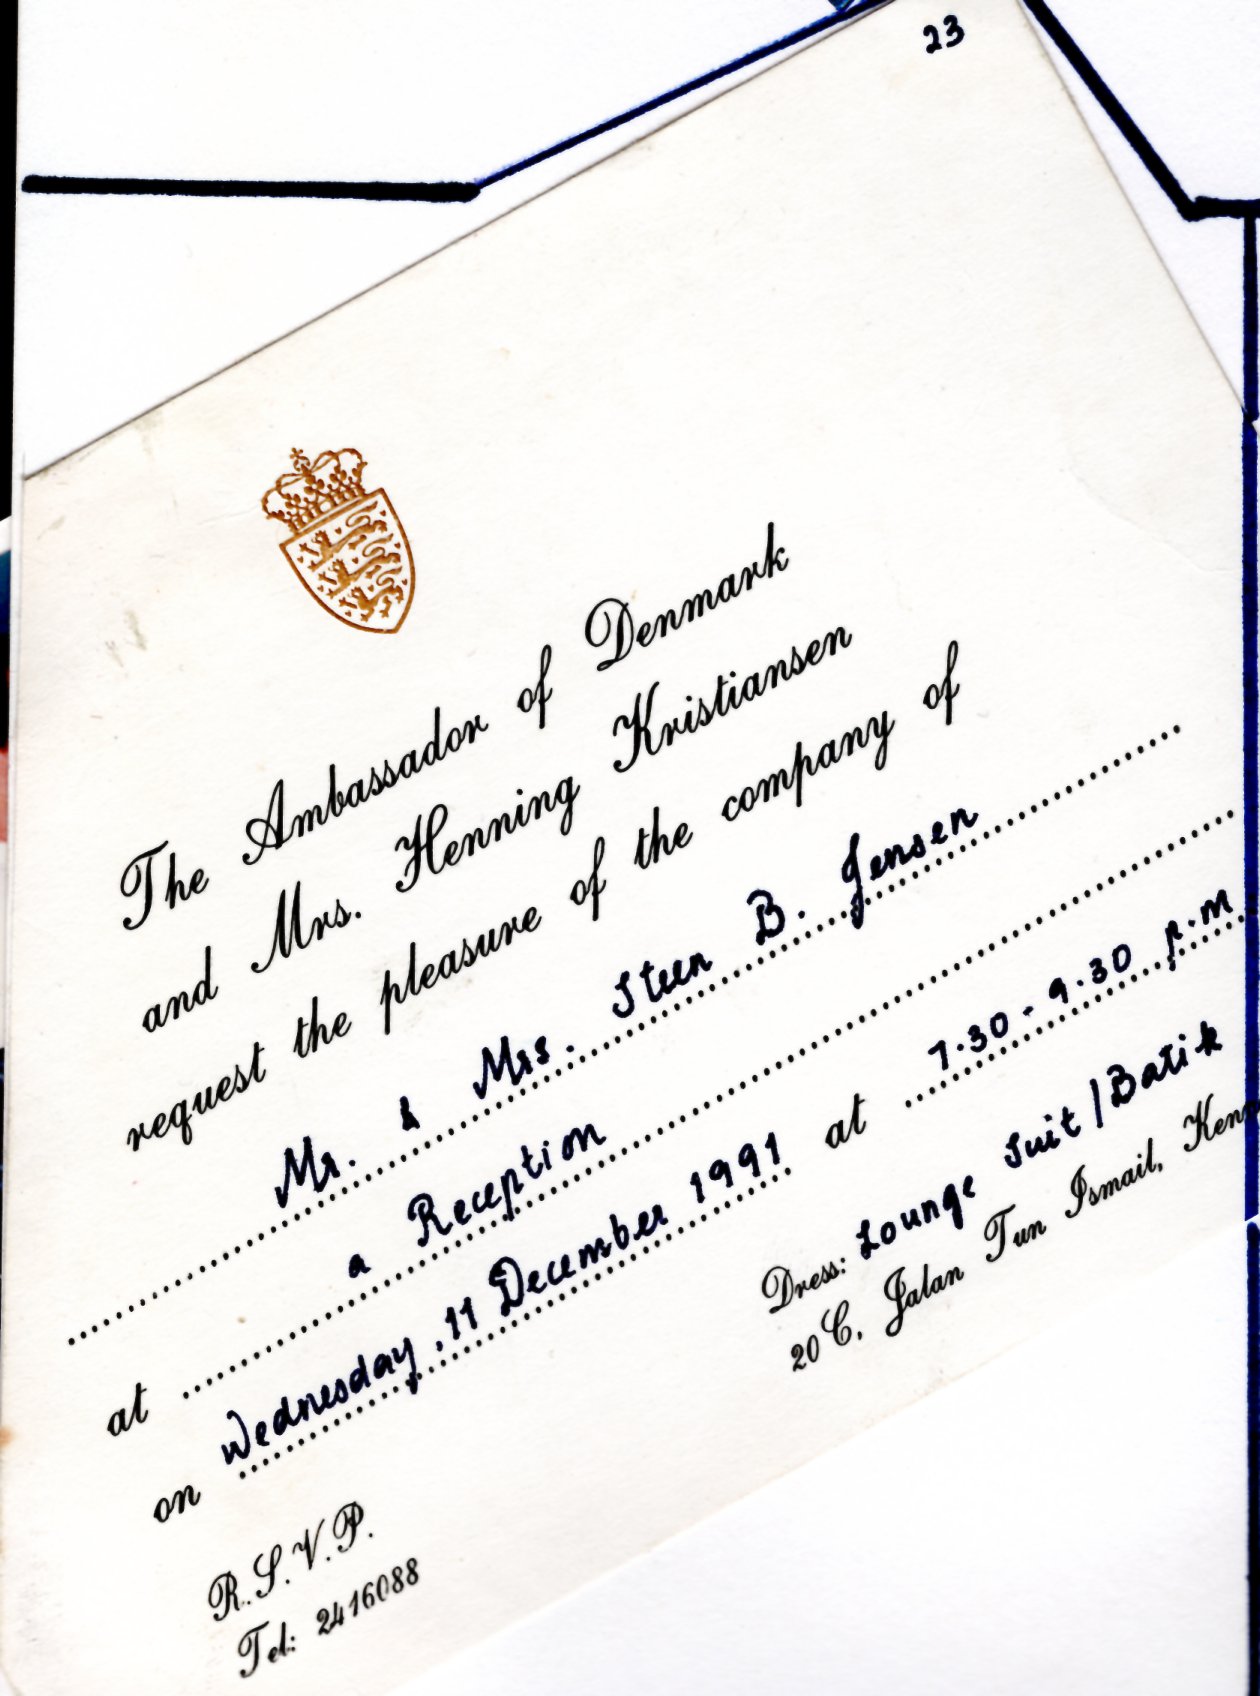 23
The Ambassador of Denmark
and Mrs. Henning Kristiansen
request the pleasure of the company of
Mr. & Mrs. Steen B. Jensen
at a Reception
on Wednesday, 11 December 1991 at 7.30 - 9.30 p.m
R.S.V.P.
Tel: 2416088
Dress: Lounge Suit / Batik
20 C, Jalan Tun Ismail,